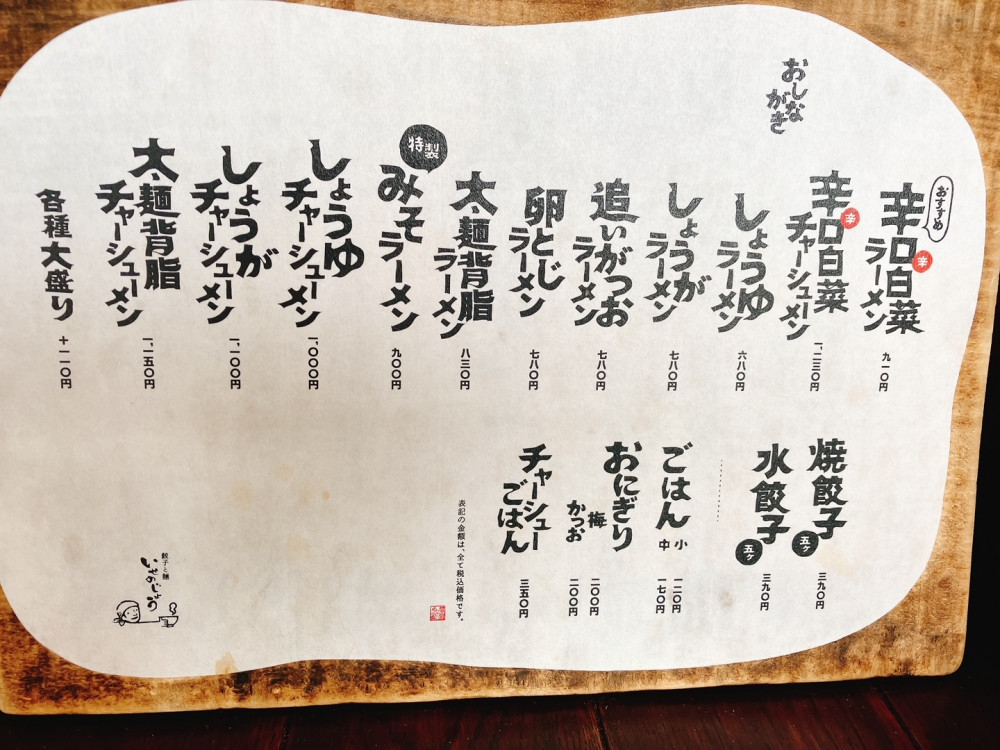 おしながき
おすすめ
辛口白菜ラーメン
辛
九一〇円
辛口白菜チャーシューメン
辛
一、二三〇円
しょうゆラーメン
六八〇円
しょうがラーメン
七八〇円
追いがつおラーメン
七八〇円
卵とじラーメン
七八〇円
太麺背脂ラーメン
八三〇円
特製
みそラーメン
九〇〇円
しょうゆチャーシューメン
一、〇〇〇円
しょうがチャーシューメン
一、一〇〇円
太麺背脂チャーシューメン
一、一五〇円
各種大盛り
+一一〇円
焼餃子
五ヶ
三九〇円
水餃子
五ヶ
三九〇円
ごはん
小 一二〇円
中 一七〇円
おにぎり
梅 二〇〇円
かつお 二〇〇円
チャーシューごはん
三五〇円
表記の金額は、全て税込価格です。
餃子と麺
いせのじょう